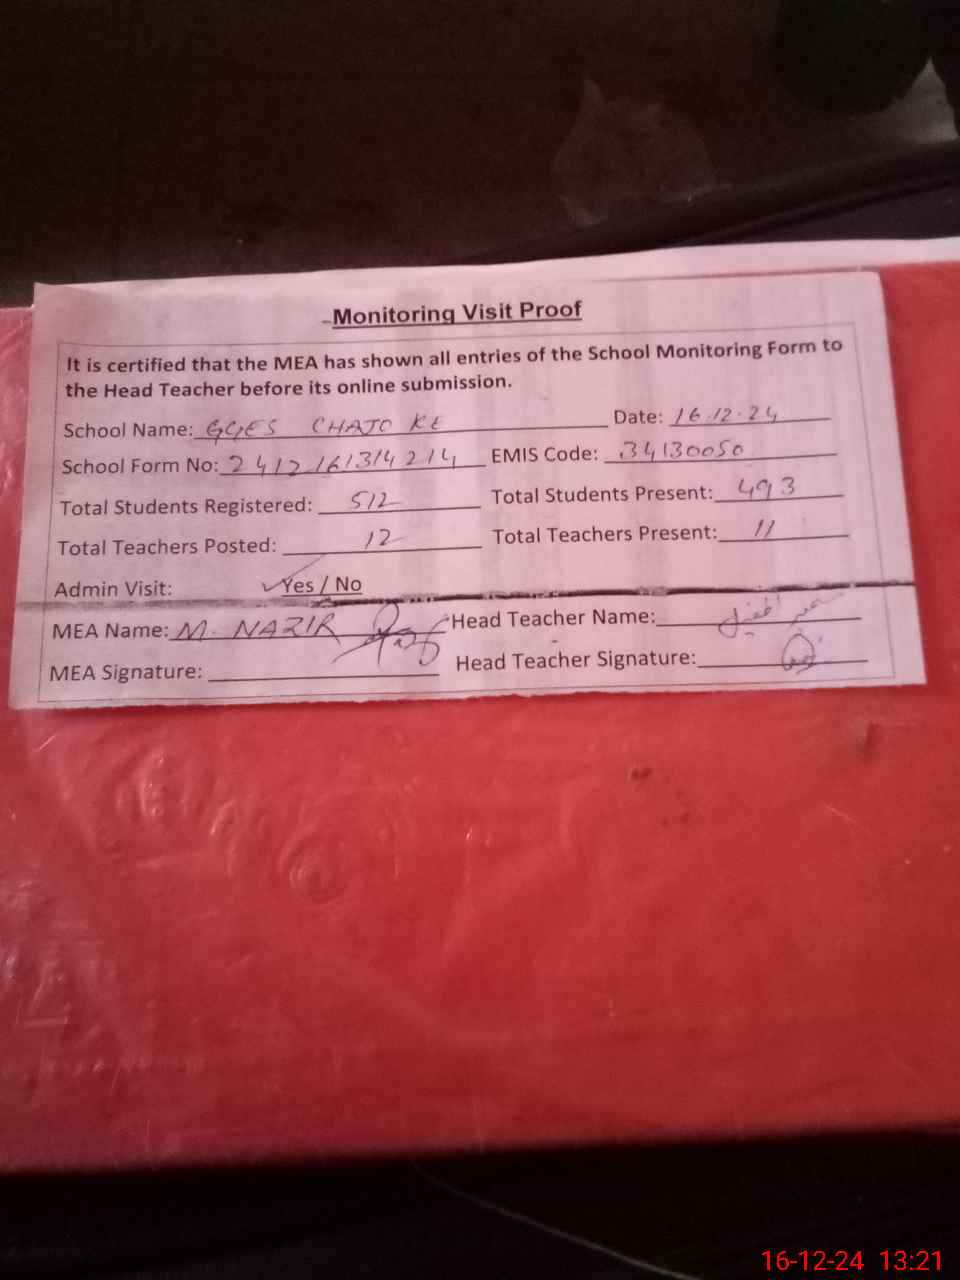 Monitoring Visit Proof
It is certified that the MEA has shown all entries of the School Monitoring Form to
the Head Teacher before its online submission.
School Name: GGES CHAJO KE Date: 16.12.24
School Form No: 2412161314214 EMIS Code: 34130050
Total Students Registered: 512 Total Students Present: 493
Total Teachers Posted: 12 Total Teachers Present: 11
Admin Visit: ✓Yes / No
MEA Name: M. NAZIR Head Teacher Name:
MEA Signature: Head Teacher Signature:
16-12-24 13:21